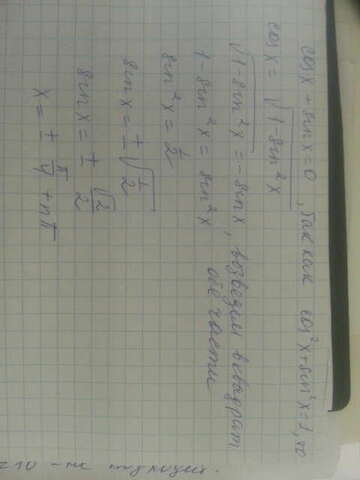 cos x + sin x = 0, так как cos²x + sin²x = 1, то
cos x = √(1 - sin²x)
√(1 - sin²x) = - sin x, возведем в квадрат
обе части
1 - sin²x = sin²x
sin²x = 1/2
sin x = ± √(1/2)
sin x = ± √2/2
x = ± π/4 + nπ